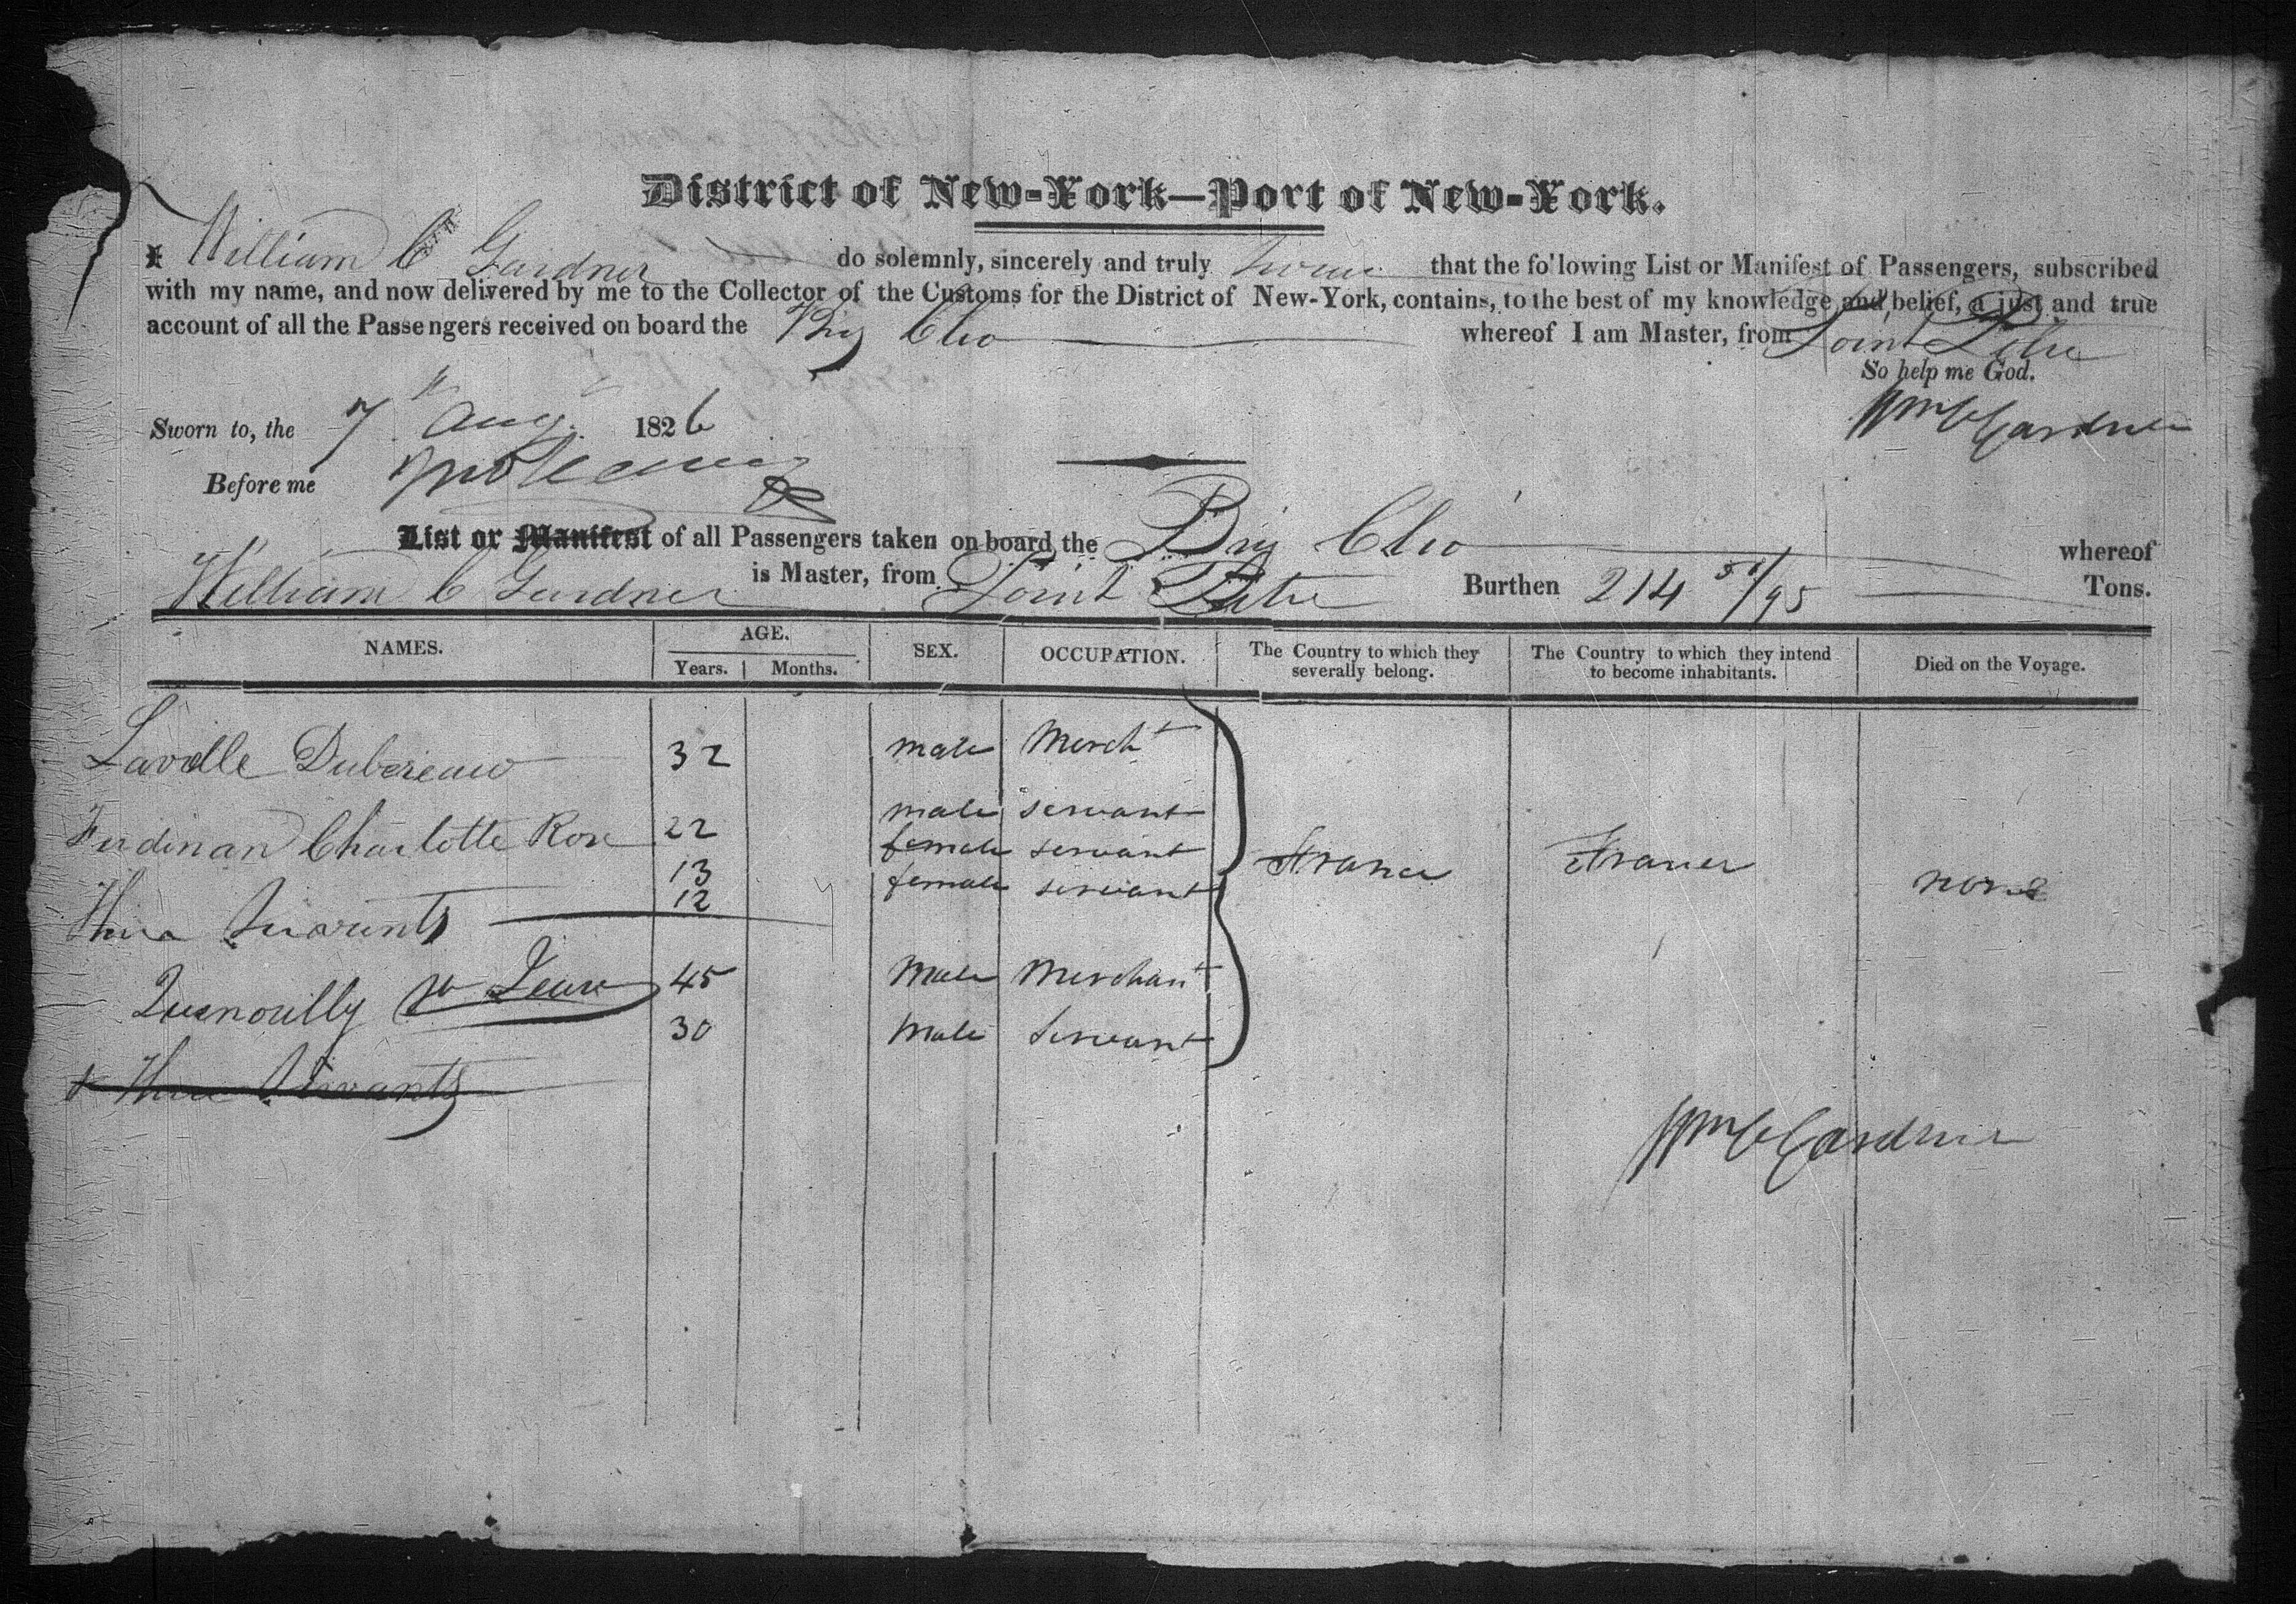 District of New-York—Port of New-York.
I William C Gardner do solemnly, sincerely and truly swear that the following List or Manifest of Passengers, subscribed
with my name, and now delivered by me to the Collector of the Customs for the District of New-York, contains, to the best of my knowledge and belief, a just and true
account of all the Passengers received on board the Brig Clio whereof I am Master, from Point Petre
So help me God.
Wm C Gardner
Sworn to, the 7th Aug. 1826
Before me
List or Manifest of all Passengers taken on board the Brig Clio whereof
William C Gardner is Master, from Point Petre Burthen 214 51/95 Tons.
NAMES. AGE. SEX. OCCUPATION. The Country to which they severally belong. The Country to which they intend to become inhabitants. Died on the Voyage.
Years. Months.
Lavolle Dubereau 32 male Mercht
Ferdinan Charlotte Rose 22 male servant
13 female servant France France none
12 female servant
Three Servants
45 Male Merchant
30 Male Servant
Three Servants
Wm C Gardner